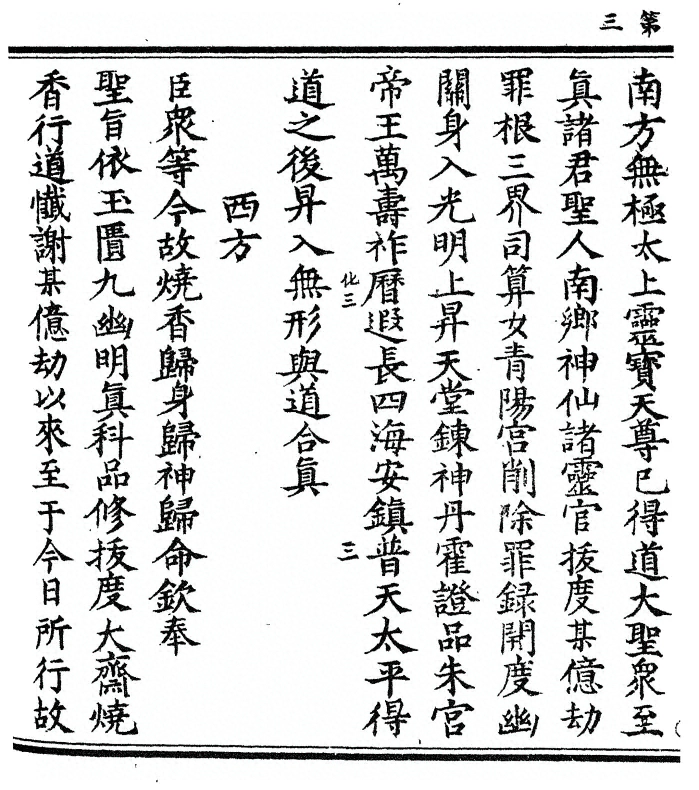 第三
南方無極太上靈寶天尊已得道大聖衆至
眞諸君聖人南鄉神仙諸靈官拔度某億劫
罪根三界司算女青陽宮削除罪録開度幽
關身入光明上昇天堂鍊神丹霍證品朱宮
帝王萬壽祚曆遐長四海安鎮普天太平得
化三
三
道之後昇入無形與道合眞
西方
臣衆等今故燒香歸身歸神歸命欽奉
聖旨依玉匱九幽明眞科品修拔度大齋燒
香行道懺謝某億劫以來至于今日所行故